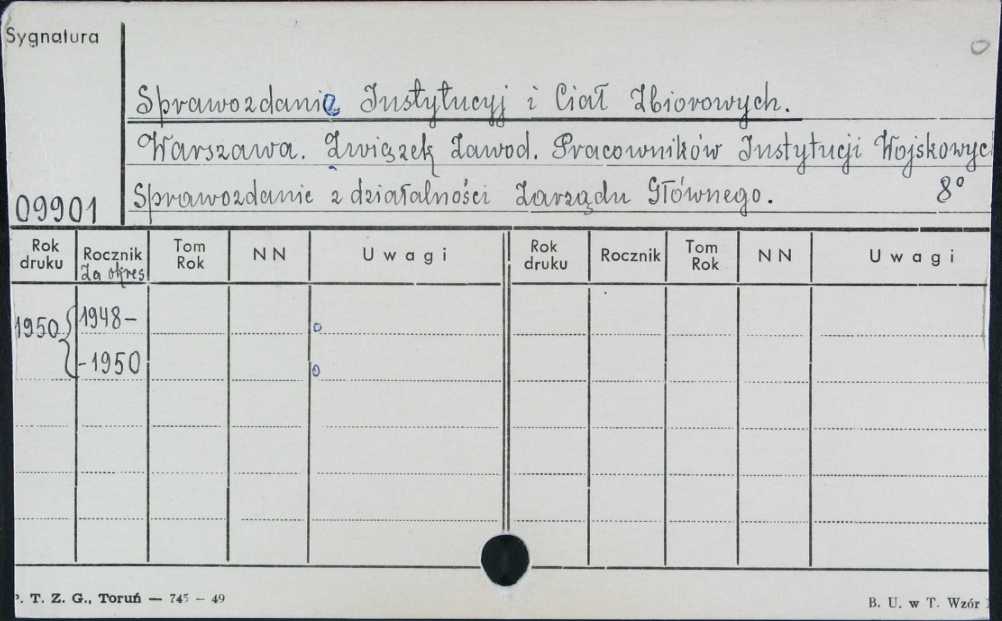 Sygnatura
Sprawozdania Instytucyj i Ciał Zbiorowych.
Warszawa. Związek Zawod. Pracowników Instytucji Wojskowyc
Sprawozdanie z działalności Zarządu Głównego. 8°
09901
Rok druku Rocznik Za okres Tom Rok NN Uwagi Rok druku Rocznik Tom Rok NN Uwagi
1950 1948-
-1950
P. T. Z. G., Toruń — 745 — 49 B. U. w T. Wzór